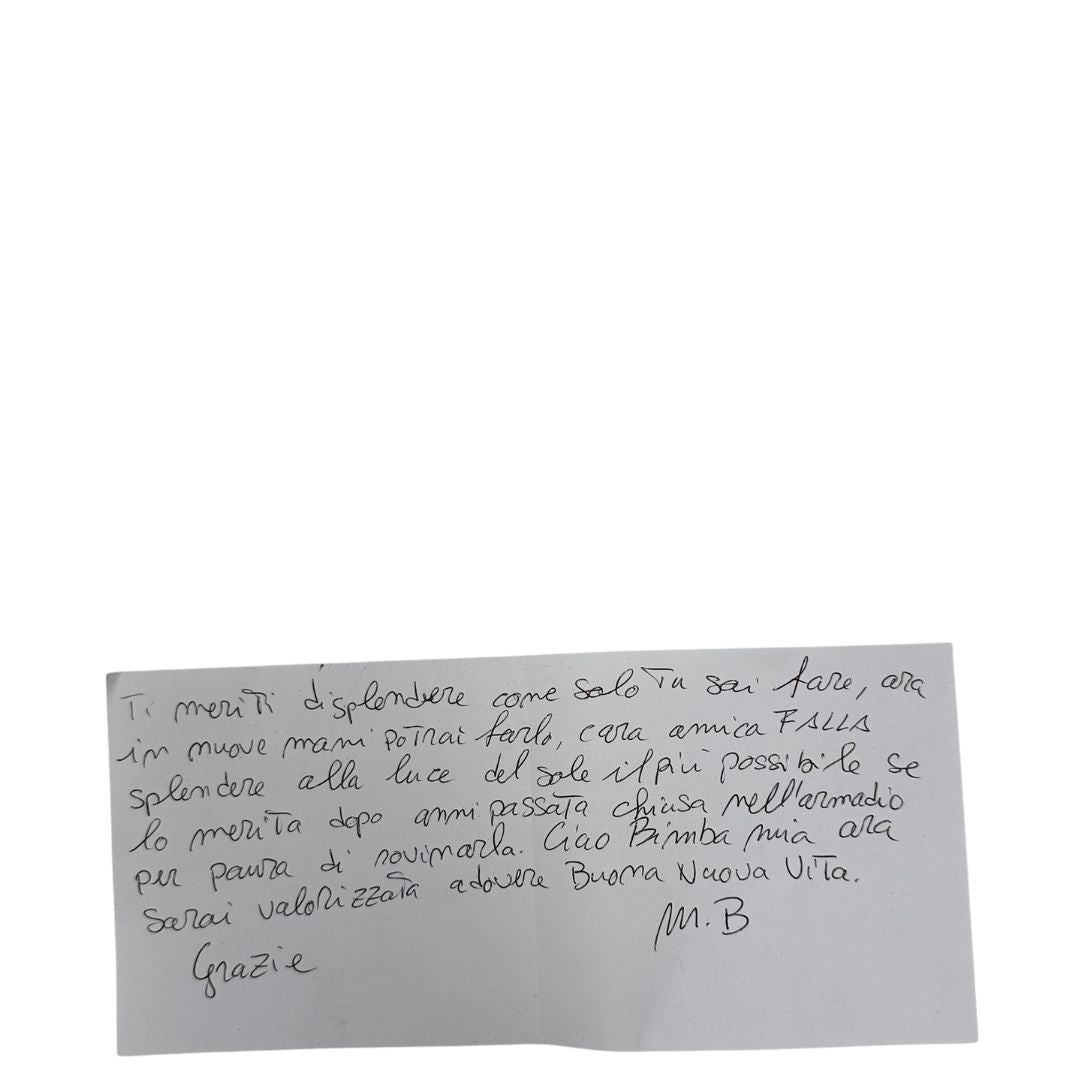 Ti meriti di splendere come solo Tu sai fare, ora
in nuove mani potrai farlo, cara amica FALLA
splendere alla luce del sole il più possibile se
lo merita dopo anni passata chiusa nell'armadio
per paura di rovinarla. Ciao Bimba mia ora
sarai valorizzata a dovere Buona Nuova Vita.
M.B
Grazie